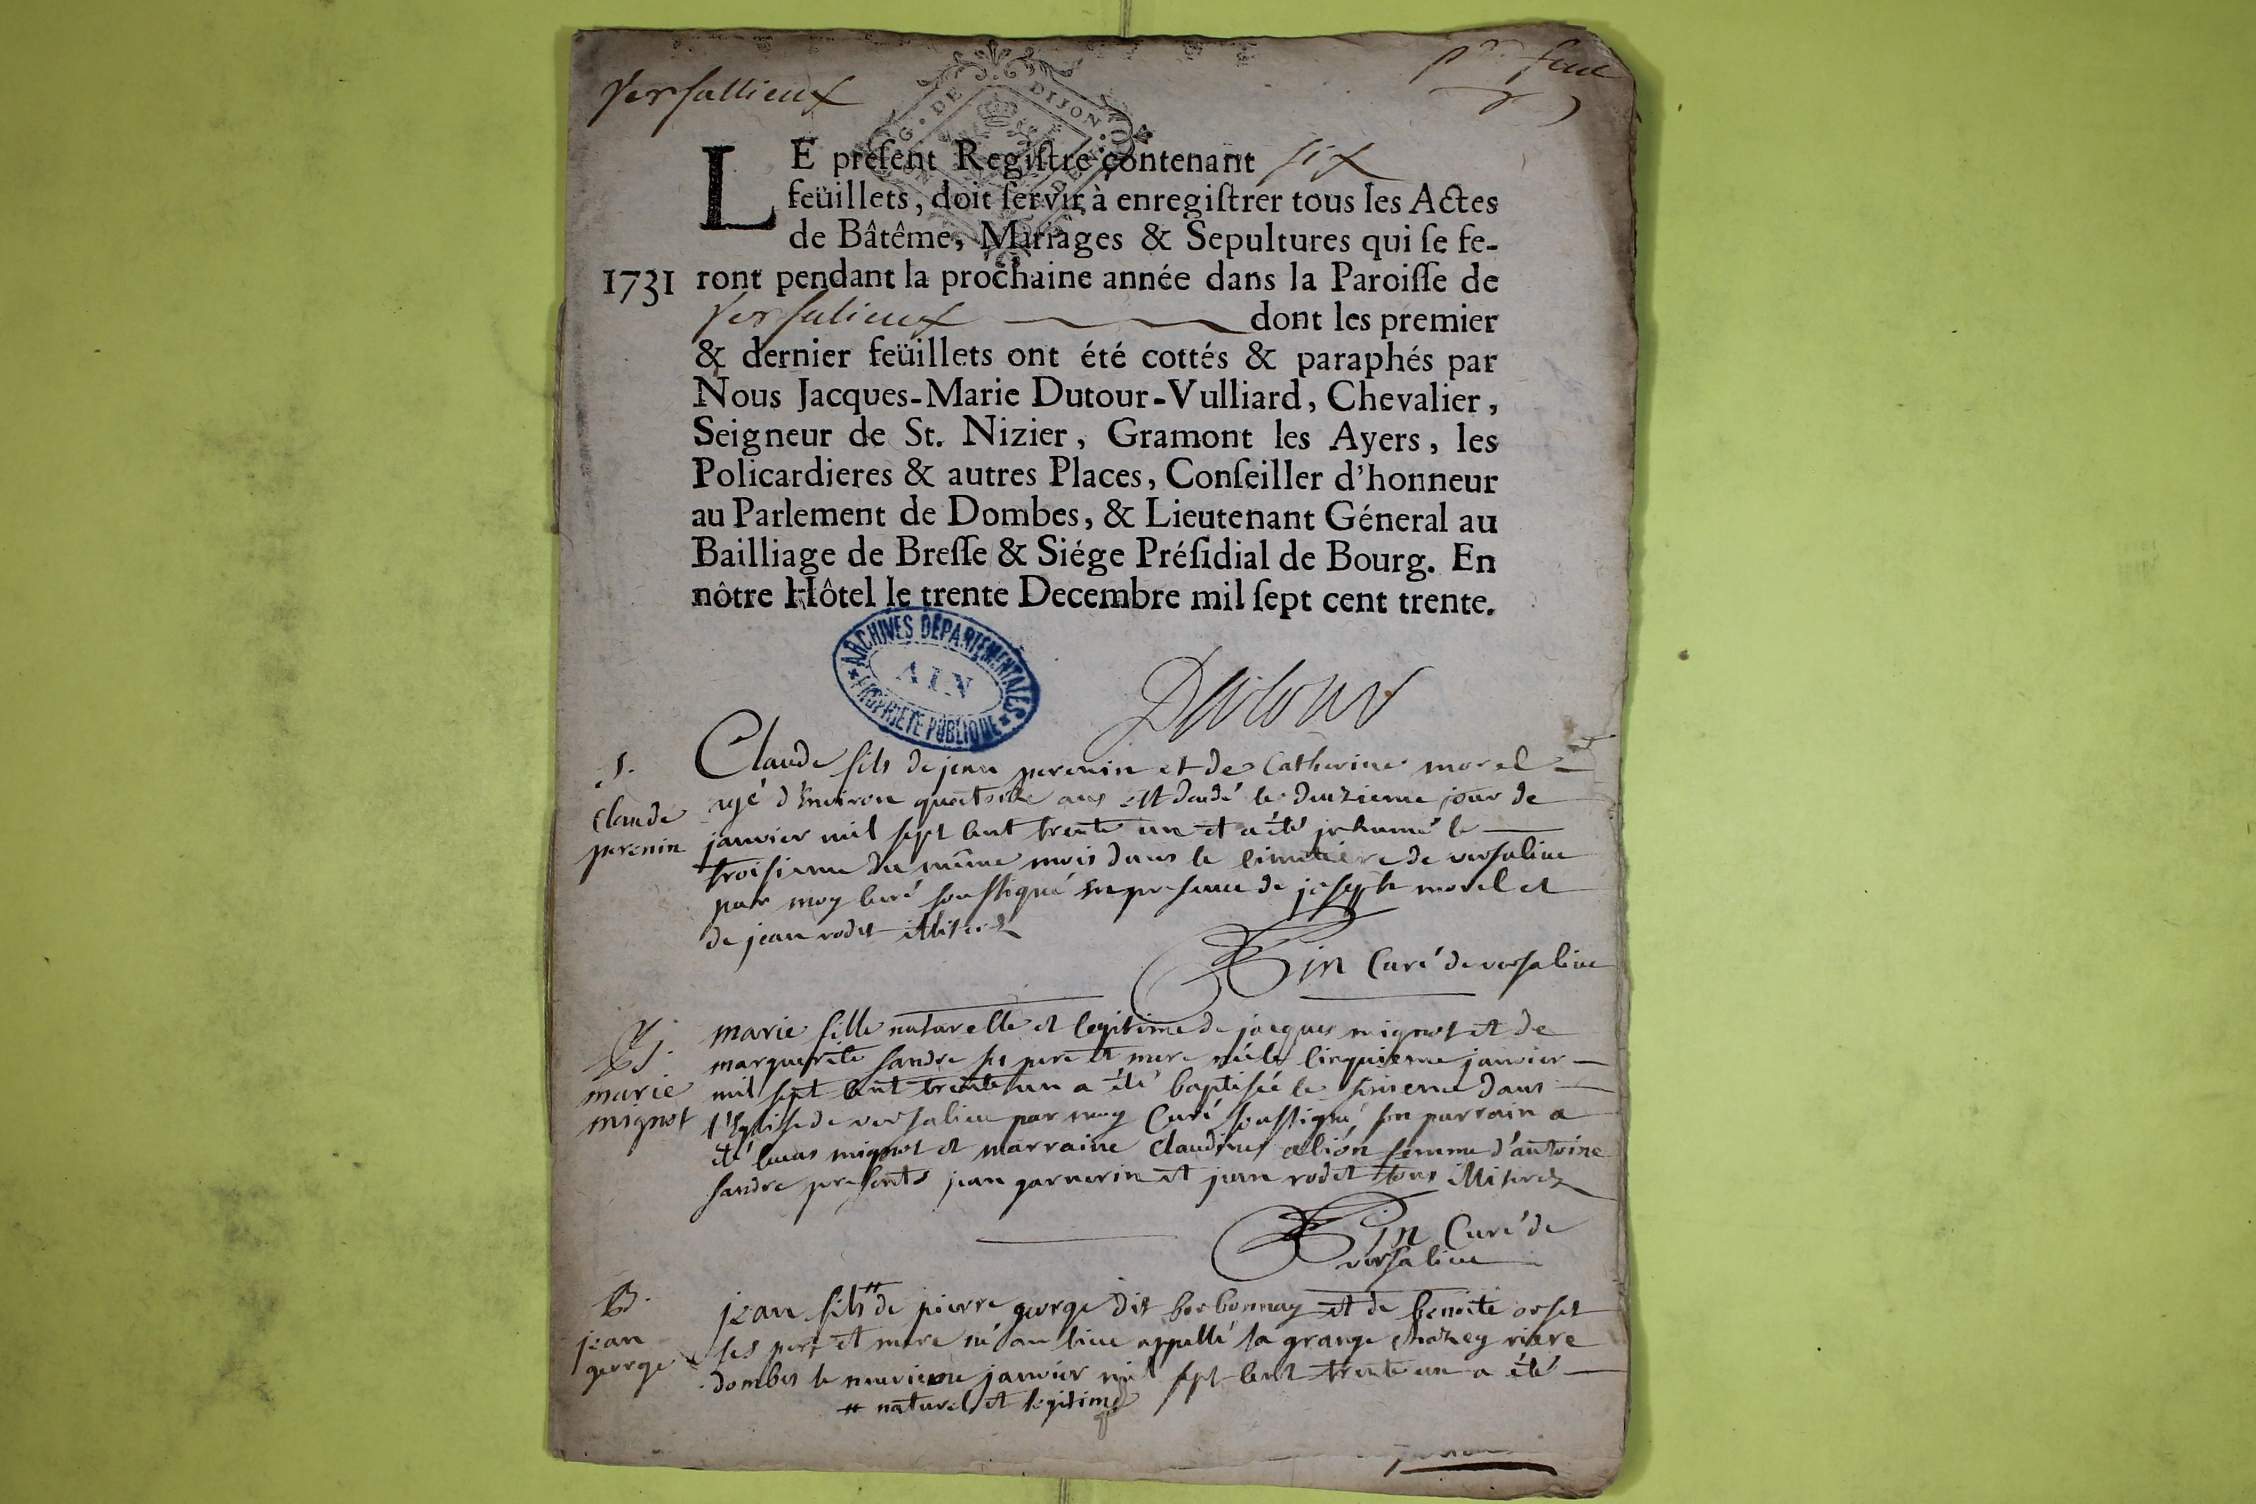 Versallieux
G. DE DIJON
LE preſent Regiſtre contenant six
feüillets, doit ſervir à enregiſtrer tous les Actes
de Bâtême, Mariages & Sepultures qui ſe fe-
1731 ront pendant la prochaine année dans la Paroiſſe de
Versalieux dont les premier
& dernier feüillets ont été cottés & paraphés par
Nous Jacques-Marie Dutour-Vulliard, Chevalier,
Seigneur de St. Nizier, Gramont les Ayers, les
Policardieres & autres Places, Conſeiller d'honneur
au Parlement de Dombes, & Lieutenant Géneral au
Bailliage de Breſſe & Siége Préſidial de Bourg. En
nôtre Hôtel le trente Decembre mil ſept cent trente.
ARCHIVES DÉPARTEMENTALES
AIN
PROPRIÉTÉ PUBLIQUE
Dutour
S.
claude
perenin
Claude fils de jean perenin et de Catherine morel
agé d'Environ quatorze ans est decedé le deuzieme jour de
janvier mil sept cent trente un et a été inhumé le
troisieme du même mois dans le cimetiere de versalieu
par moy curé soussigné En presence de joseph morel et
de jean rodet illiterez
Curé de versalieu
marie
mignot
marie fille naturelle et legitime de jacques mignot et de
marguerite sandre ses pere et mere née le cinquieme janvier
mil sept cent trente un a été baptisée le sixieme dans
l'Eglise de versalieu par moy Curé soussigné son parrain a
été lucas mignot et marraine claudine alion femme d'antoine
sandre presents jean garnerin et jean rodet tous illiterez
Curé de
versalieu
B.
jean
george
jean fils # de pierre george dit borbonnay et de benoite orset
ses pere et mere né au lieu appellé la grange chazey riere
dombes le neuvieme janvier mil sept cent trente un a été
# naturel et legitime